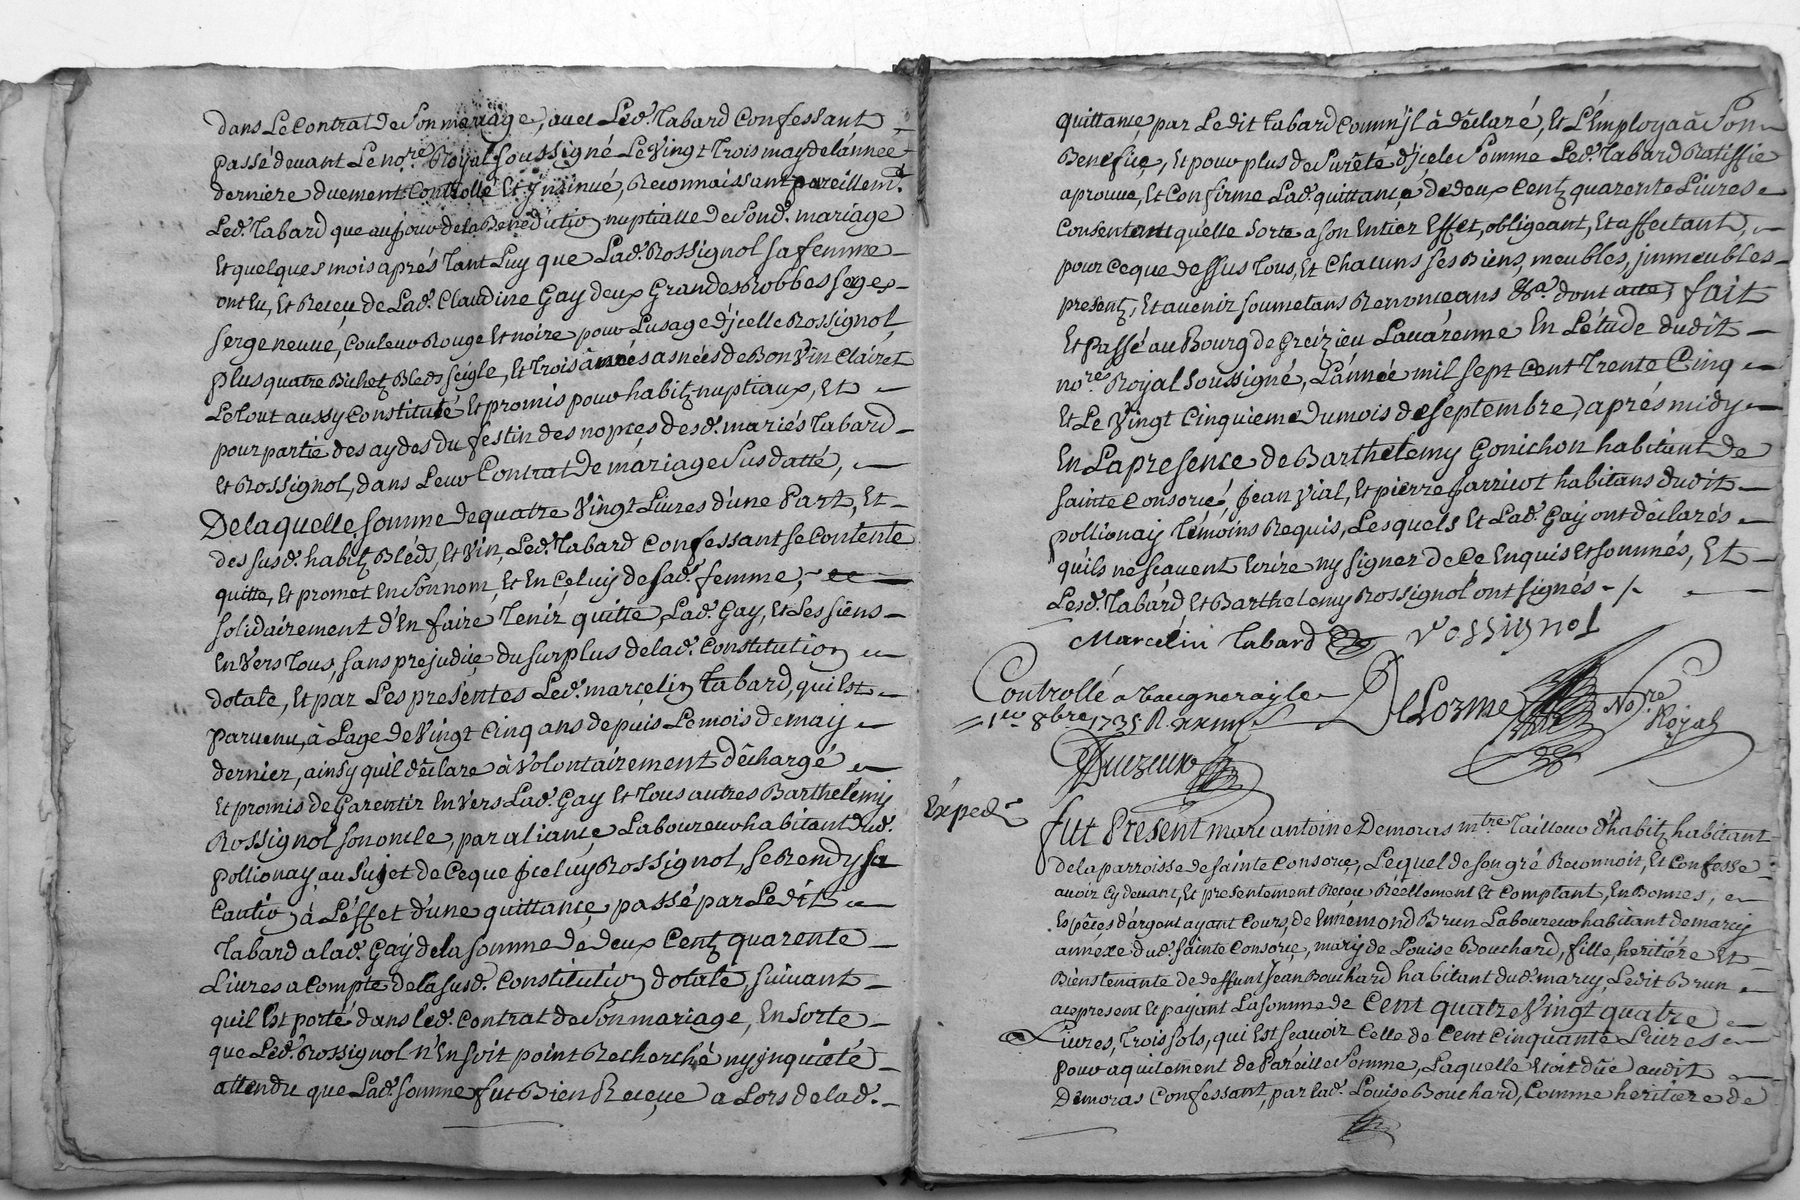 dans Le contrat de Son mariage, avec Led. Tabard Confessant
passé devant Le nore Royal soussigné Le Vingt Trois may de Lánnee
derniere duement Controllé Et ynsinué, Reconnaissant pareillemt
Led. Tabard que au jour de la Benediction nuptialle de Sond. mariage
Et quelques mois aprés Tant Luy que Lad. Rossignol sa femme
ont Eu, Et Reçeu de Lad. Claudine Gay deux Grandes Robbes serges
serge neuve, Couleur Rouge Et noire pour Lusage d'jcelle Rossignol,
plus quatre Bichetz Bleds seigle, Et Trois asnées de Bon Vin Clairet
Le tout aussy Constitué Et promis pour habitz nuptiaux, Et
pour partie des aydes du festin des nopces desd. mariés Tabard
Et Rossignol, dans Leur Contrat de mariage Susdatté,
De laquelle somme de quatre Vingt Livres d'une Part, Et
des susd. habitz, Bléds, Et Vin, Led. Tabard Confessant se Contente
quitte, Et promet En son nom, Et En Çeluy de sad. femme,
solidairement d'En faire Tenir quitte Lad. Gay, Et Les siens
En Vers Tous, sans prejudiçe du surplus de lad. Constitution
dotale, Et par Les presentes Led. marcelin Tabard, qui Est
parvenu, à Lage de Vingt Cinq ans depuis Le mois de may
dernier, ainsy quil déclare à Volontairement déchargé
Et promis de Garentir En Vers Lad. Gay Et Tous autres Barthelemy
Rossignol son oncle, par aliançe Laboureur habitant dud.
pollionay, au Sujet de Ce que Jceluy Rossignol, se Rendy sa
Caution, à L'éffet d'une quittançe passé par Ledit
Tabard a lad. Gay de la somme de deux Centz quarente
Livres a Compte de la susd. Constitution dotale, suivant
quil Est porté dans led. Contrat de Son mariage, En sorte
que Led. Rossignol n'En soit point Recherché ny jnquiété
attendu que Lad. somme fut Bien Reçeue a Lors de lad.
quittançe, par Le dit Tabard Comm'jl à déclaré, Et L'Employa à Son
Benefiçe, Et pour plus de Surêté d'jcele Somme Led. Tabard Ratiffie
aprouve, Et Confirme Lad. quittançe de deux Centz quarente Livres
Consentant qu'elle sorte a son Entier Effet, obligeant, Et affectant,
pour Ce que dessus Tous, Et Chacuns ses Biens, meubles, jmmeubles
presentz, Et avenir soumetans Renonceans &a. dont acte, fait
Et Passé au Bourg de Greizieu Lavárenne En L'étude dudit
nore Royal soussigné, L'année mil sept Cent Trente Cinq
Et Le Vingt Cinquieme du mois de séptembre, aprés midy
En La presence de Barthelemy Gonichon habitant de
sainte Consorce, Jean Vial, Et pierre Jarricot habitans dudit
pollionay Témoins Requis, Lesquels Et Lad. Gay ont déclarés
qu'ils ne sçavent Ecrire ny signer de Ce Enquis Et sommés, Et
Lesd. Tabard Et Barthelemy Rossignol ont signés
Marcelin Tabard rossignol
Controllé a Vaugneray le
1er 8bre 1735 R.
DeLorme Nore
Royal
Expedié
fut Present marc antoine Demoras mtre Tailleur d'habitz habitant
de la parroisse de sainte Consorçe, Lequel de son gré Reconnoit, Et Confesse
avoir Cy devant, Et presentement Reçeu Réellement Et Comptant, En Bonnes,
Espêces d'argent ayant Cours, de Ennemond Brun Laboureur habitant de marcy
annéxe dud. sainte Consorçe, mary de Louise Bouchard, fille, heritiére Et
Bienstenante de deffunt Jean Bouchard habitant dud. marcy, Ledit Brun
ace present Et payant La somme de Cent quatre Vingt quatre
Livres, Trois sols, qui Est sçavoir Celle de Cent Cinquante Livres
pour aquitement de Paréille Somme, Laquelle Etoit dûe audit
Demoras Confessant, par lad. Louise Bouchard, Comme heritiére de